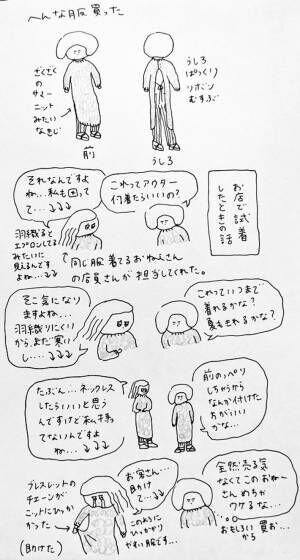 へんな服買った
ざくざく
の
サマー
ニット
みたい
なきじ
前
うしろ
ぱっくり
リボン
むすぶ
うしろ
お店で試着
したときの話
これってアウター
何着たらいいの?
それなんですよ
ね…私も困って
て…↓↓↓
羽織ると
エプロンしてる
みたいに
見えるんです
よね…↓↓
同じ服着てるおねえさん
の店員さんが担当してくれた。
これっていつまで
着れるかな?
夏もきれるかな?
そこ気になり
ますよね…
羽織りにくい
から、まだ寒い
し…↓↓↓
前のっぺり
しちゃうから
なんか付けた
方がいい
かな…
たぶん…ネックレス
したらいいと思う
んですけど私も持
てないんですよ
ね…↓↓↓
全然売る気
なくてこのおねー
さんめちゃ
ウケるな…
おもしろい 買お…
お客さん…
助けて…↓↓
このようにひっかかり
やすい服です…
ブレスレットの
チェーンが
ニットにひっか
かった
(助けた)